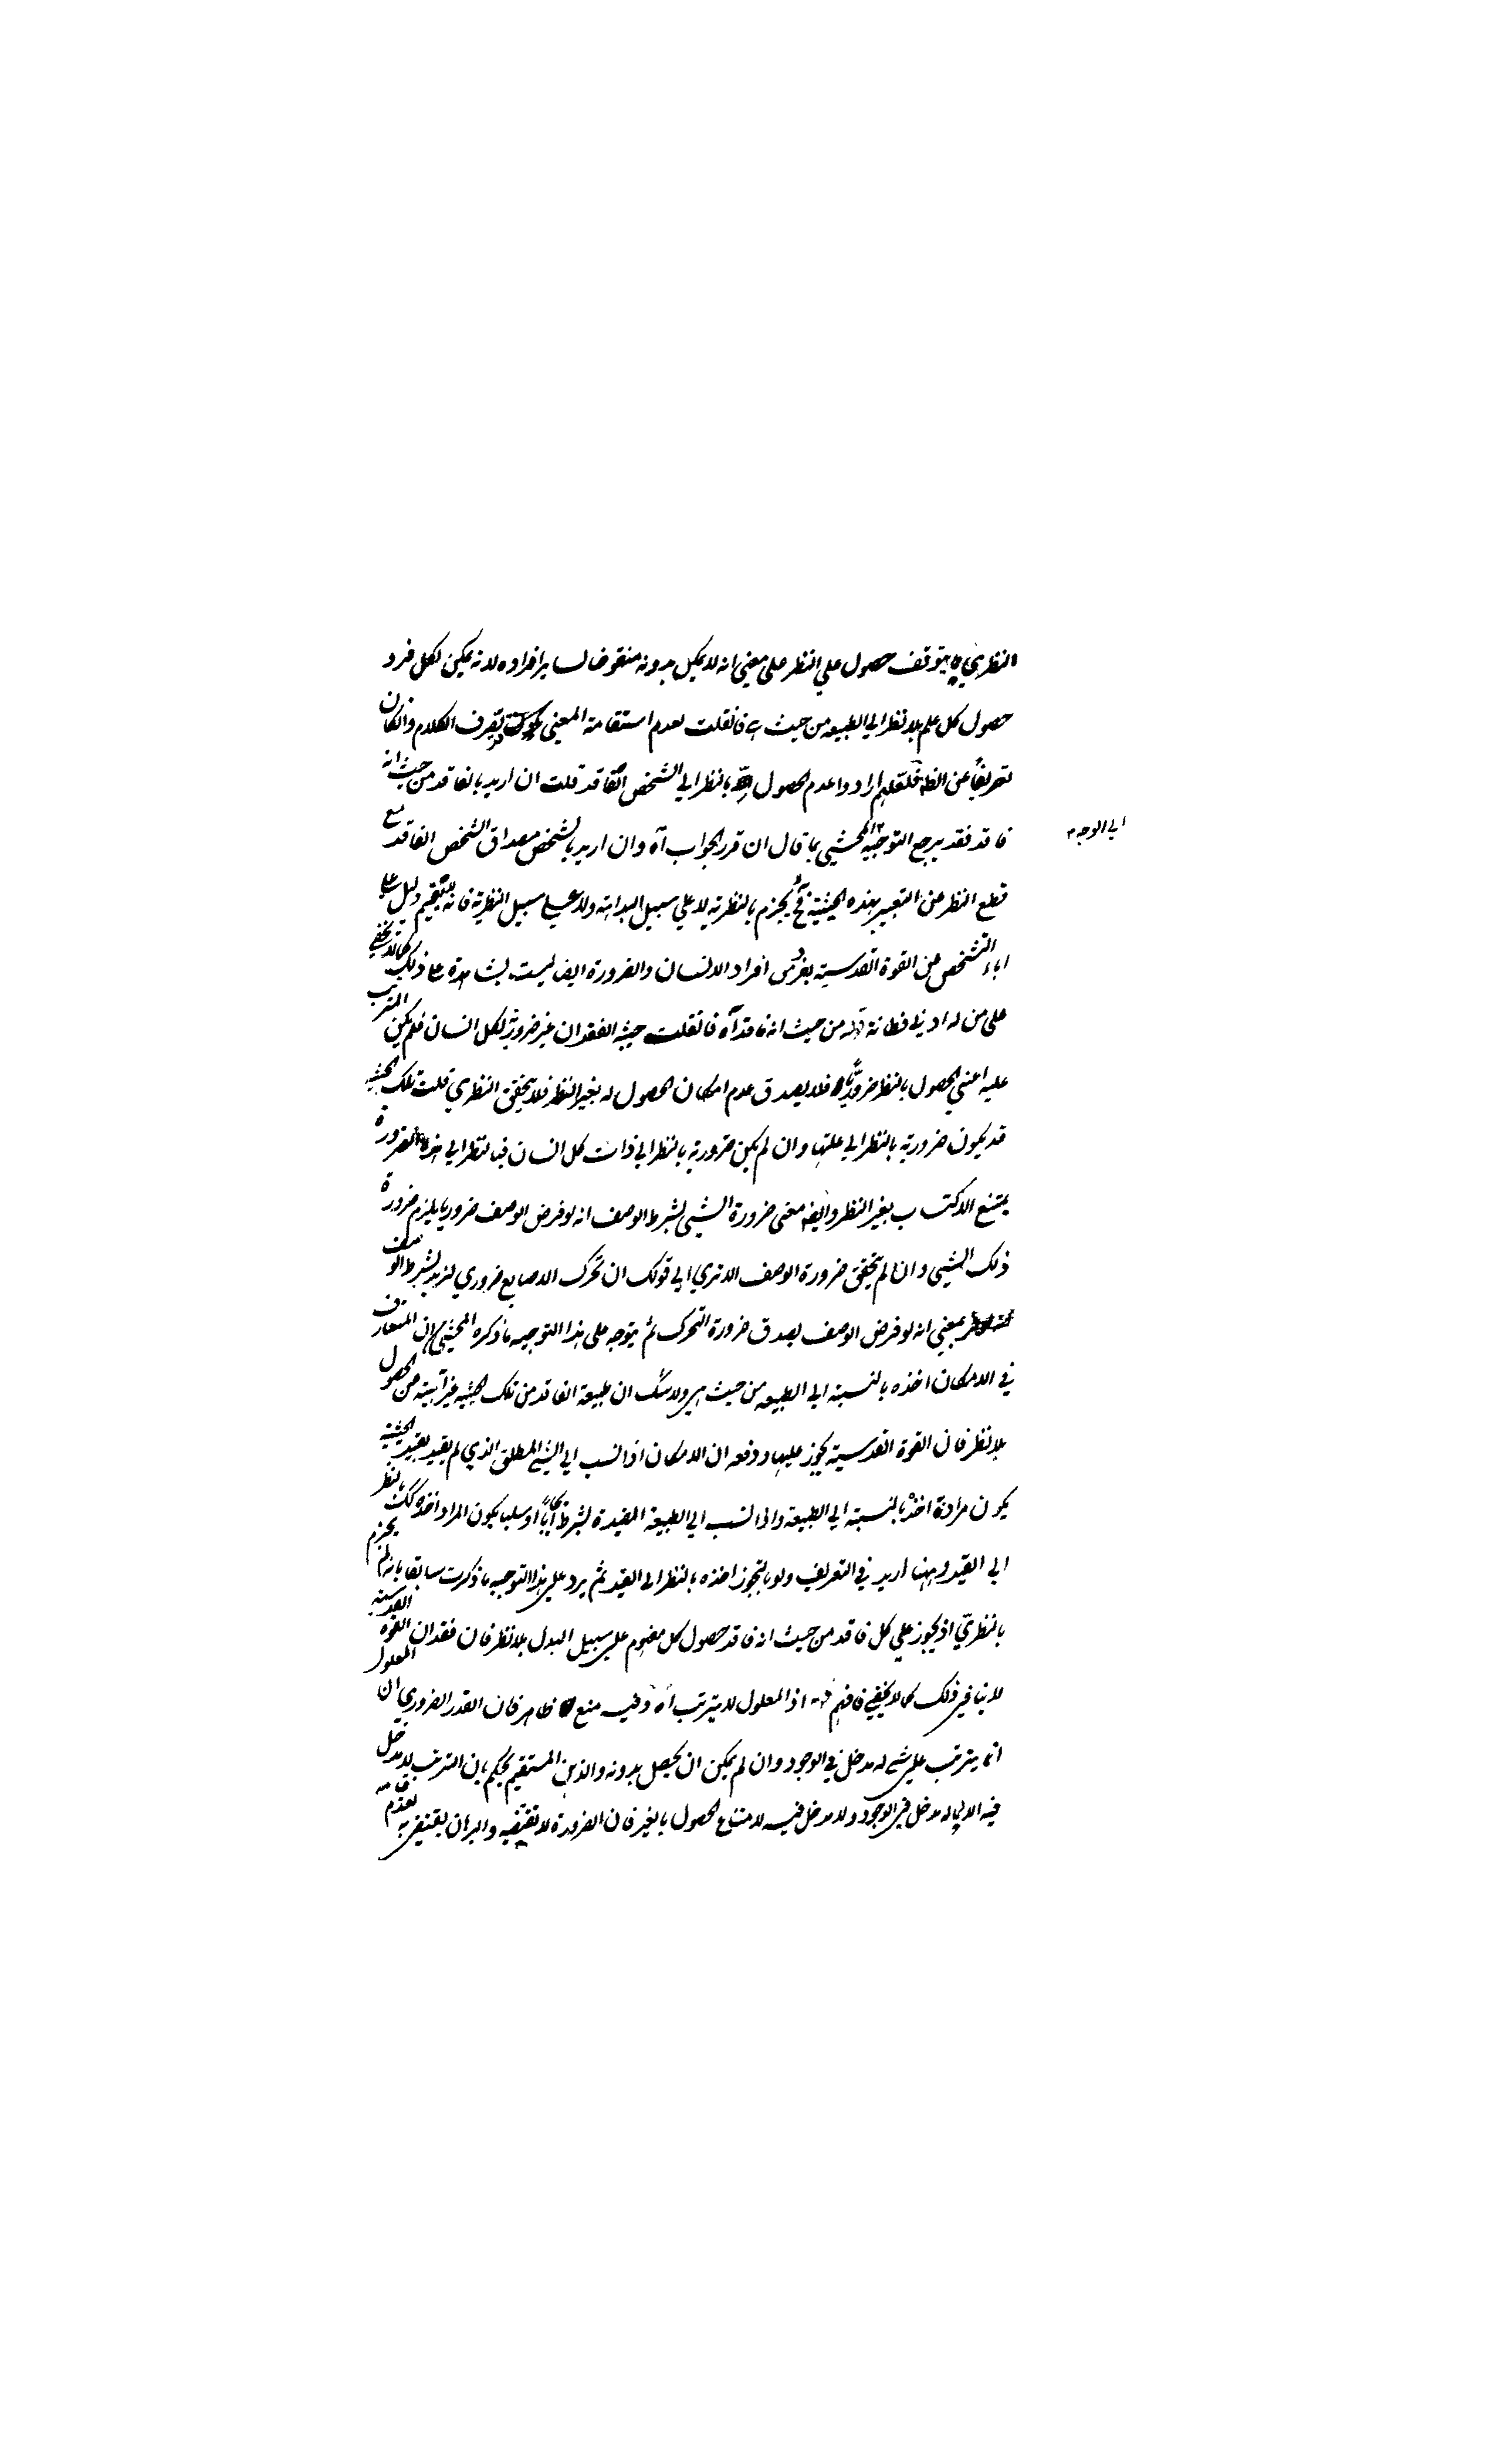 النظري ما يتوقف حصوله علي النظر على معني انه لا يمكن بدونه منقوضا لسائر افراده لانه يمكن لكل فرد
حصول كل علم بلا نظر الي الطبيعه من حيث هي فانقلت لعدم استقامة المعنى يصرف الكلام وان كان
تعريفا عن فلعلهم ارادوا عدم الحصول بالنظر الي الشخص الفاقد قلت ان اريد بالفاقد من حيث انه
فاقد فقد يرجع التوجيه المحشي بما قال ان قرر الجواب آه وان اريد بالشخص مصداق الشخص الفاقد مع
الي الوجه
قطع النظر عن التعبير بهذه الحيثية فح لم يجزم بالنظرية لا على سبيل البداهة ولا على سبيل النظرية فانه لم يقم دليل على
اباء الشخص عن القوة القدسية بفرد من افراد الانسان والضرورة ايضا ليست بشاهدة على ذلك كما لا يخفى
على من له ادنى فطانة قوله من حيث انه فاقد آه فانقلت حيثية الفقدان غير ضرورية لكل انسان فلم يكن المترتب
عليه اعني الحصول بالنظر ضروريا فلا يصدق عدم امكان الحصول له بغير النظر فلا يتحقق النظري قلت تلك الحيثية
قد يكون ضرورية بالنظر الي علتها وان لم يكن ضرورية بالنظر الى ذات كل انسان فبالنظر الي هذه الضرورة
يمتنع الاكتساب بغير النظر وايضا معنى ضرورة الشيي بشرط الوصف انه لو فرض الوصف ضروريا يلزم ضرورة
ذلك الشيي وان لم يتحقق ضرورة الوصف الا تري الي قولك ان تحرك الاصابع ضروري لزيد بشرط الوصف
بمعني انه لو فرض الوصف يصدق ضرورة التحرك ثم يتوجه على هذا التوجيه ما ذكره المحشي ان المتعارف
في الامكان اخذه بالنسبة الي الطبيعه من حيث هي ولا شك ان طبيعة الفاقد من تلك الحيثيه غير آبية عن الحصول
بلا نظر فان القوة القدسية يجوز عليها ودفعه ان الامكان اذا نسب الي الشيي المطلق الذي لم يقيد بقيد الحيثية
يكون مرادة اخذه بالنسبة الي الطبيعة واذا نسب الي الطبيعة المقيدة بشرط ايجابا او سلبا يكون المراد اخذه كك بالنظر
الي القيد وههنا اريد في التعريف ولو بالتجوز اخذه بالنظر الى القيد ثم يرد على هذا التوجيه ما ذكرت سابقا بانه لم يجزم
بالنظري اذ يجوز علي كل فاقد من حيث انه فاقد حصول كل مفهوم على سبيل البدل بلا نظر فان فقدان القوة القدسية
لا ينافي ذلك كما لا يخفي فافهم قوله اذ المعلول لا يترتب آه وفيه منع ظاهر فان القدر الضروري ان المعلول
انما يترتب على شيء له مدخل في الوجود وان لم يمكن ان يحصل بدونه والذهن المستقيم يحكم بان الترتب لا مدخل
فيه الا لما له مدخل في الوجود ولا مدخل فيه لامتناع الحصول بالغير فان الضرورة لا تقتضيه والبرهان يقتضي به